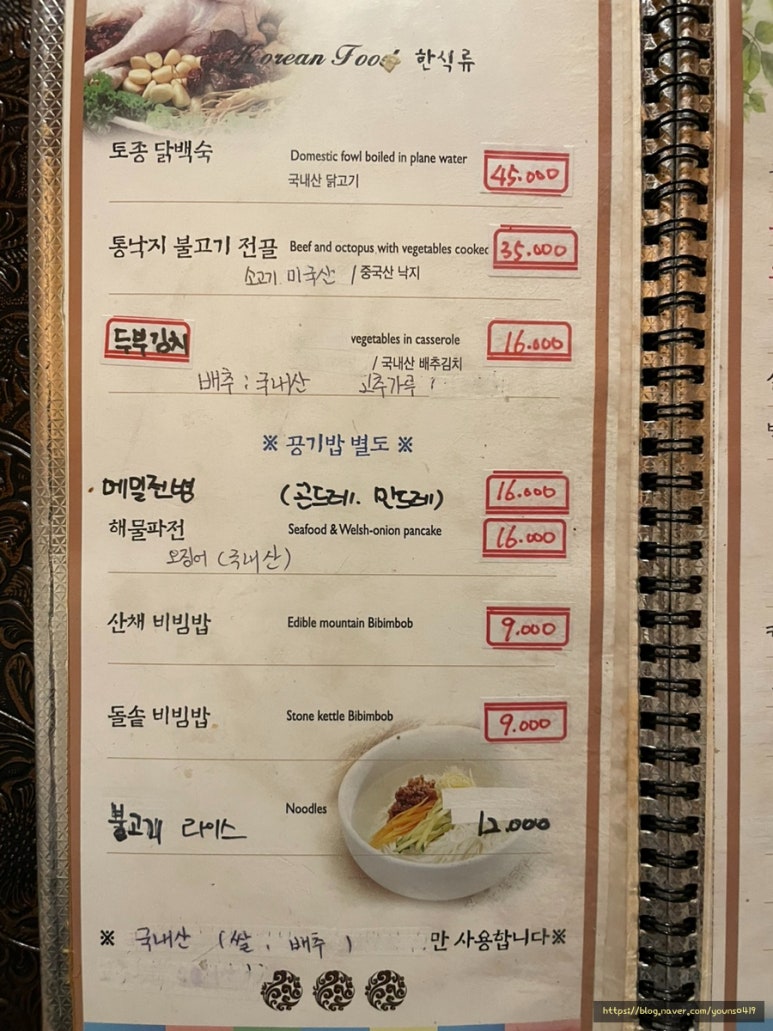 Korean Food 한식류
토종 닭백숙 Domestic fowl boiled in plane water 45.000
국내산 닭고기
통낙지 불고기 전골 Beef and octopus with vegetables cooked 35.000
소고기 미국산 / 중국산 낙지
두부김치 vegetables in casserole 16.000
/ 국내산 배추김치
배추 : 국내산 고추가루 :
※ 공기밥 별도 ※
메밀전병 (곤드레. 만드레) 16.000
해물파전 Seafood & Welsh-onion pancake 16.000
오징어 (국내산)
산채 비빔밥 Edible mountain Bibimbob 9.000
돌솥 비빔밥 Stone kettle Bibimbob 9.000
Noodles
불고기 라이스 12.000
※ 국내산 (쌀 : 배추 ) 만 사용합니다※
https://blog.naver.com/youns0419